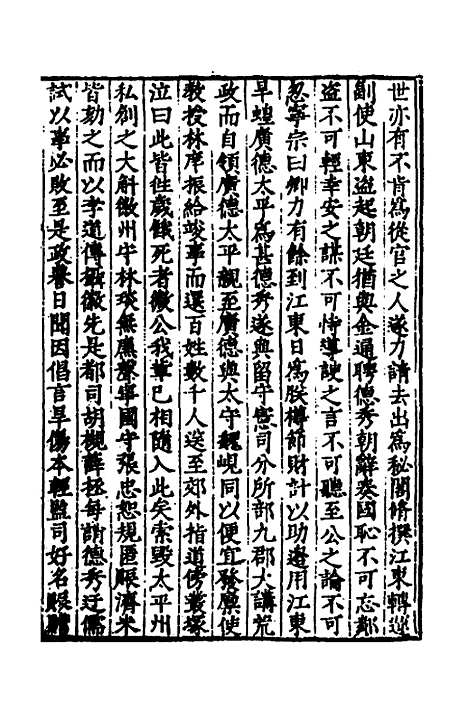 世亦有不肯爲從官之人遂力請去出爲秘閣脩撰江東轉運
副使山東盗起朝廷猶與金通聘德秀朝辭奏國恥不可忘鄰
盗不可輕幸安之謀不可恃導諛之言不可聽至公之論不可
忽寧宗曰卿力有餘到江東日爲朕撙節財計以助邊用江東
旱蝗廣德太平爲甚德秀遂與留守憲司分所部九郡大講荒
政而自領廣德太平親至廣德與太守魏峴同以便宜發廩使
教授林庠振給竣事而還百姓數千人送至郊外指道傍叢塚
泣曰此皆往歲餓死者微公我輩已相隨入此矣索毀太平州
私創之大斛徽州守林琰無廉聲寧國守張忠恕規匿賑濟米
皆劾之而以李道傳攝徽先是都司胡槻薛拯每誚德秀迂儒
試以事必敗至是政譽日聞因倡言旱傷本輕監司好名賑贍